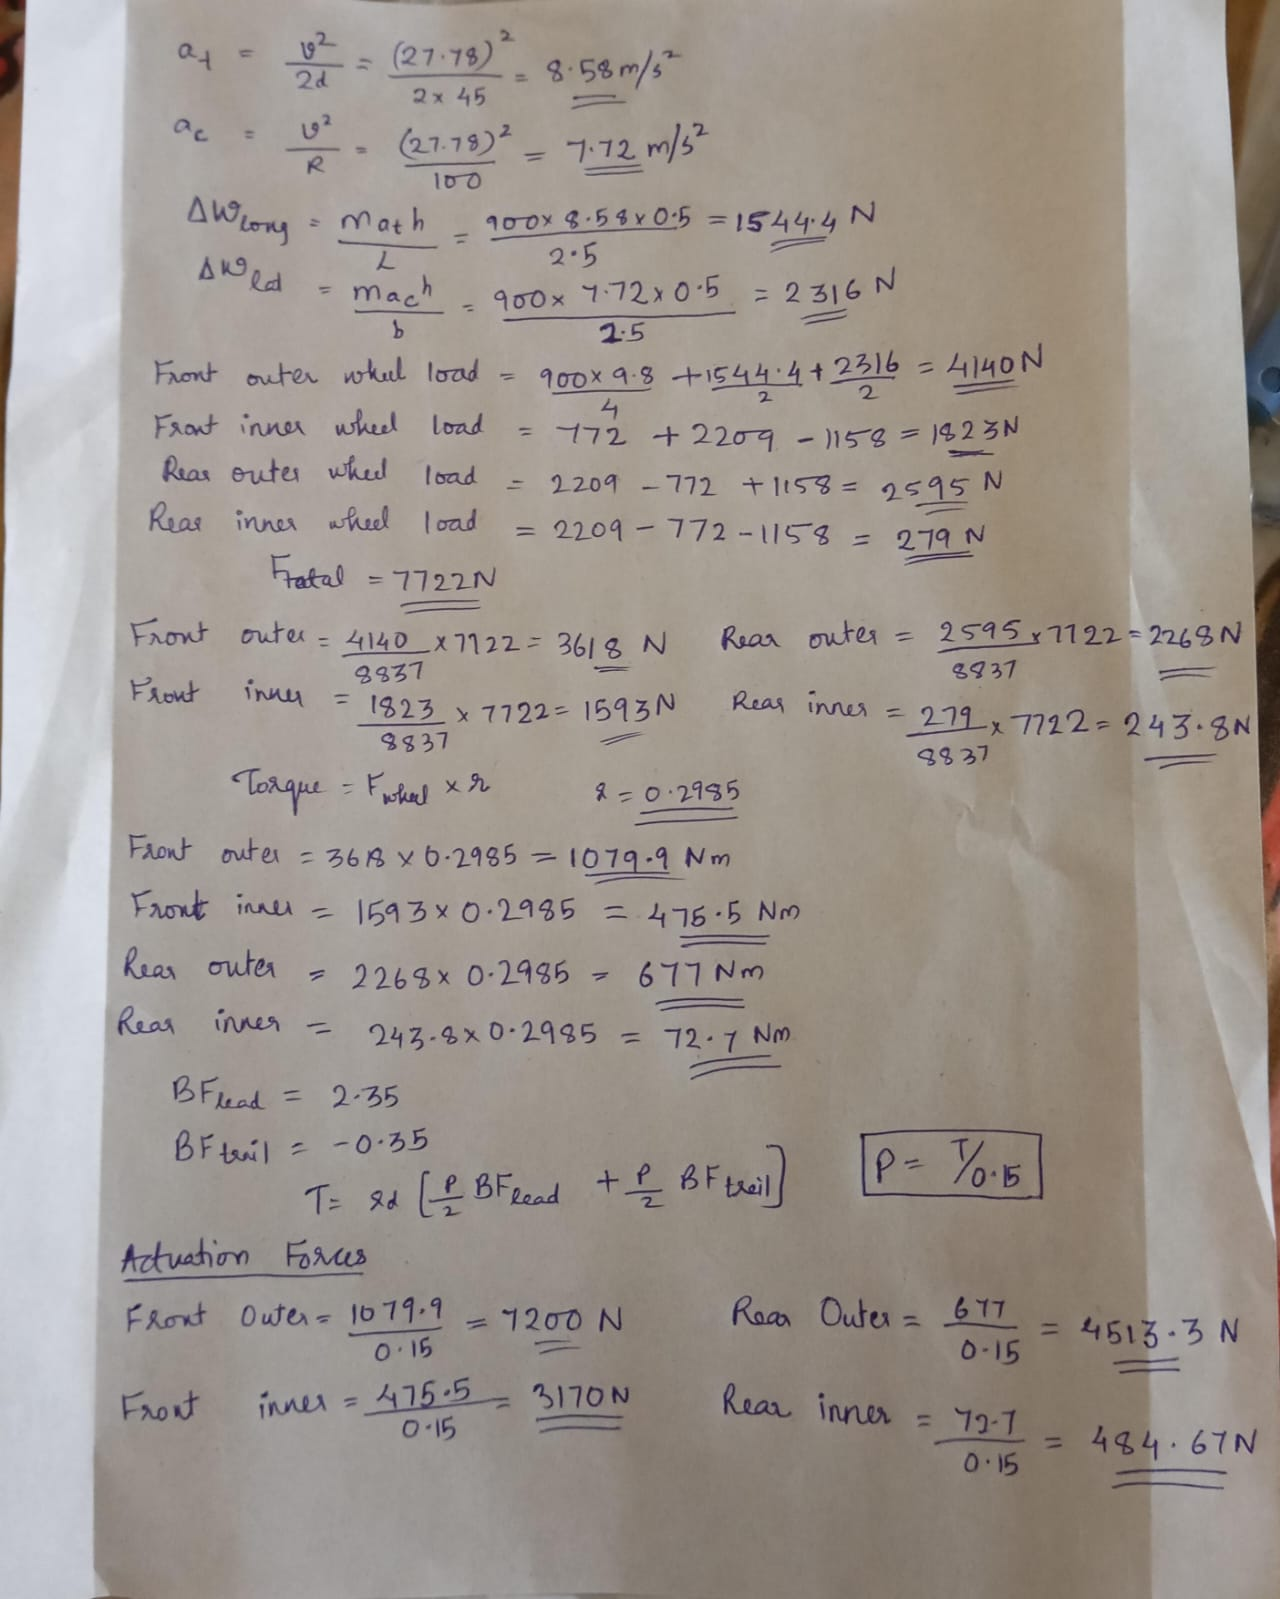 a_t = v²/2d = (27.78)²/(2 x 45) = 8.58 m/s²
a_c = v²/R = (27.78)²/100 = 7.72 m/s²
ΔW_long = m a_t h/L = 900 x 8.58 x 0.5/2.5 = 1544.4 N
ΔW_ld = m a_c h/b = 900 x 7.72 x 0.5/2.5 = 2316 N
Front outer wheel load = 900 x 9.8/4 + 1544.4/2 + 2316/2 = 4140 N
Front inner wheel load = 772 + 2209 - 1158 = 1823 N
Rear outer wheel load = 2209 - 772 + 1158 = 2595 N
Rear inner wheel load = 2209 - 772 - 1158 = 279 N
F_total = 7722 N
Front outer = 4140/8837 x 7722 = 3618 N Rear outer = 2595/8837 x 7722 = 2268 N
Front inner = 1823/8837 x 7722 = 1593 N Rear inner = 279/8837 x 7722 = 243.8 N
Torque = F_wheel x r r = 0.2985
Front outer = 3618 x 0.2985 = 1079.9 Nm
Front inner = 1593 x 0.2985 = 475.5 Nm
Rear outer = 2268 x 0.2985 = 677 Nm
Rear inner = 243.8 x 0.2985 = 72.7 Nm
BF_lead = 2.35
BF_trail = -0.35
T = rd [P/2 BF_lead + P/2 BF_trail] P = T/0.15
Actuation Forces
Front Outer = 1079.9/0.15 = 7200 N Rear Outer = 677/0.15 = 4513.3 N
Front inner = 475.5/0.15 = 3170 N Rear inner = 72.7/0.15 = 484.67 N